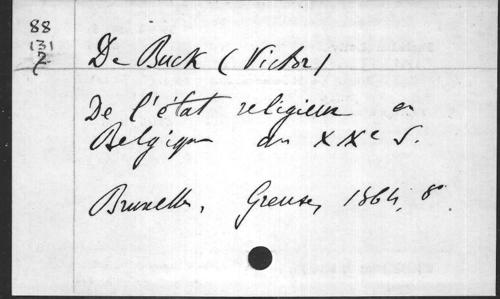 88
131
2
De Buck (Victor)
De l'état religieux en
Belgique au XIXe S.
Bruxelles, Greuse, 1864, 8°.